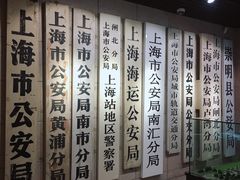 上海市公安局
上海市公安局黄浦分局
上海市公安局南市分局
上海市公安局
闸北分局
上海站地区警察署
上海海运公安局
上海市公安局南汇分局
上海市公安局城市轨道交通分局
上海市公安局
上海市公安局闸北分局
上海市公安局卢湾分局
崇明县公安局